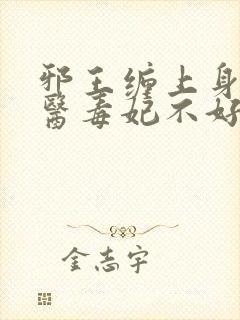 邪王缠上身
医毒妃不好
金志宇